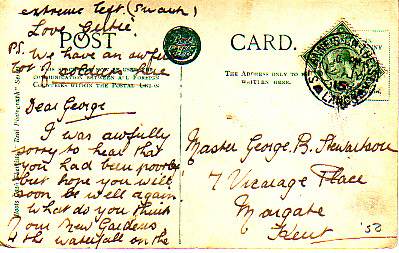 extreme left (Swash)
Love Gertie
P.S. We have an awful
lot of
POST CARD.
THE ADDRESS ONLY TO BE
WRITTEN HERE.
COMMUNICATION BETWEEN ALL FOREIGN
COUNTRIES WITHIN THE POSTAL UNION
Dear George
I was awfully
sorry to hear that
you had been poorly
but hope you will
soon be well again
What do you think
of our New Gardens
& the Waterfall on the
Master George. B.
7 Vicarage Place
Margate
Kent